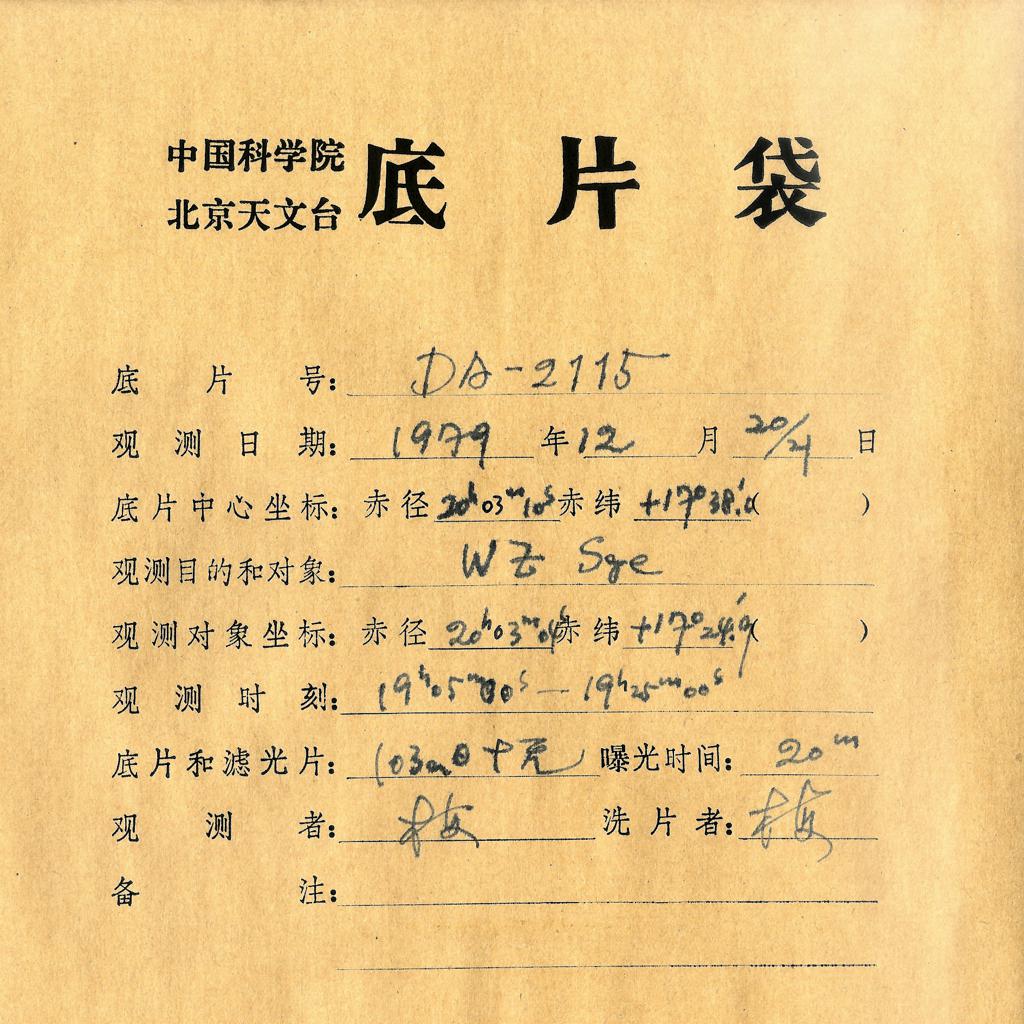 中国科学院
北京天文台
底片袋
底片号: DA-2115
观测日期: 1979 年 12 月 20/21 日
底片中心坐标: 赤径 20h03m10s 赤纬 +17°38.'0 ( )
观测目的和对象: WZ Sge
观测对象坐标: 赤径 20h03m 赤纬 +17°24.'9 ( )
观测时刻: 19h05m00s — 19h25m00s
底片和滤光片: 103a0 + 无 曝光时间: 20m
观测者: 梅 洗片者: 梅
备注: